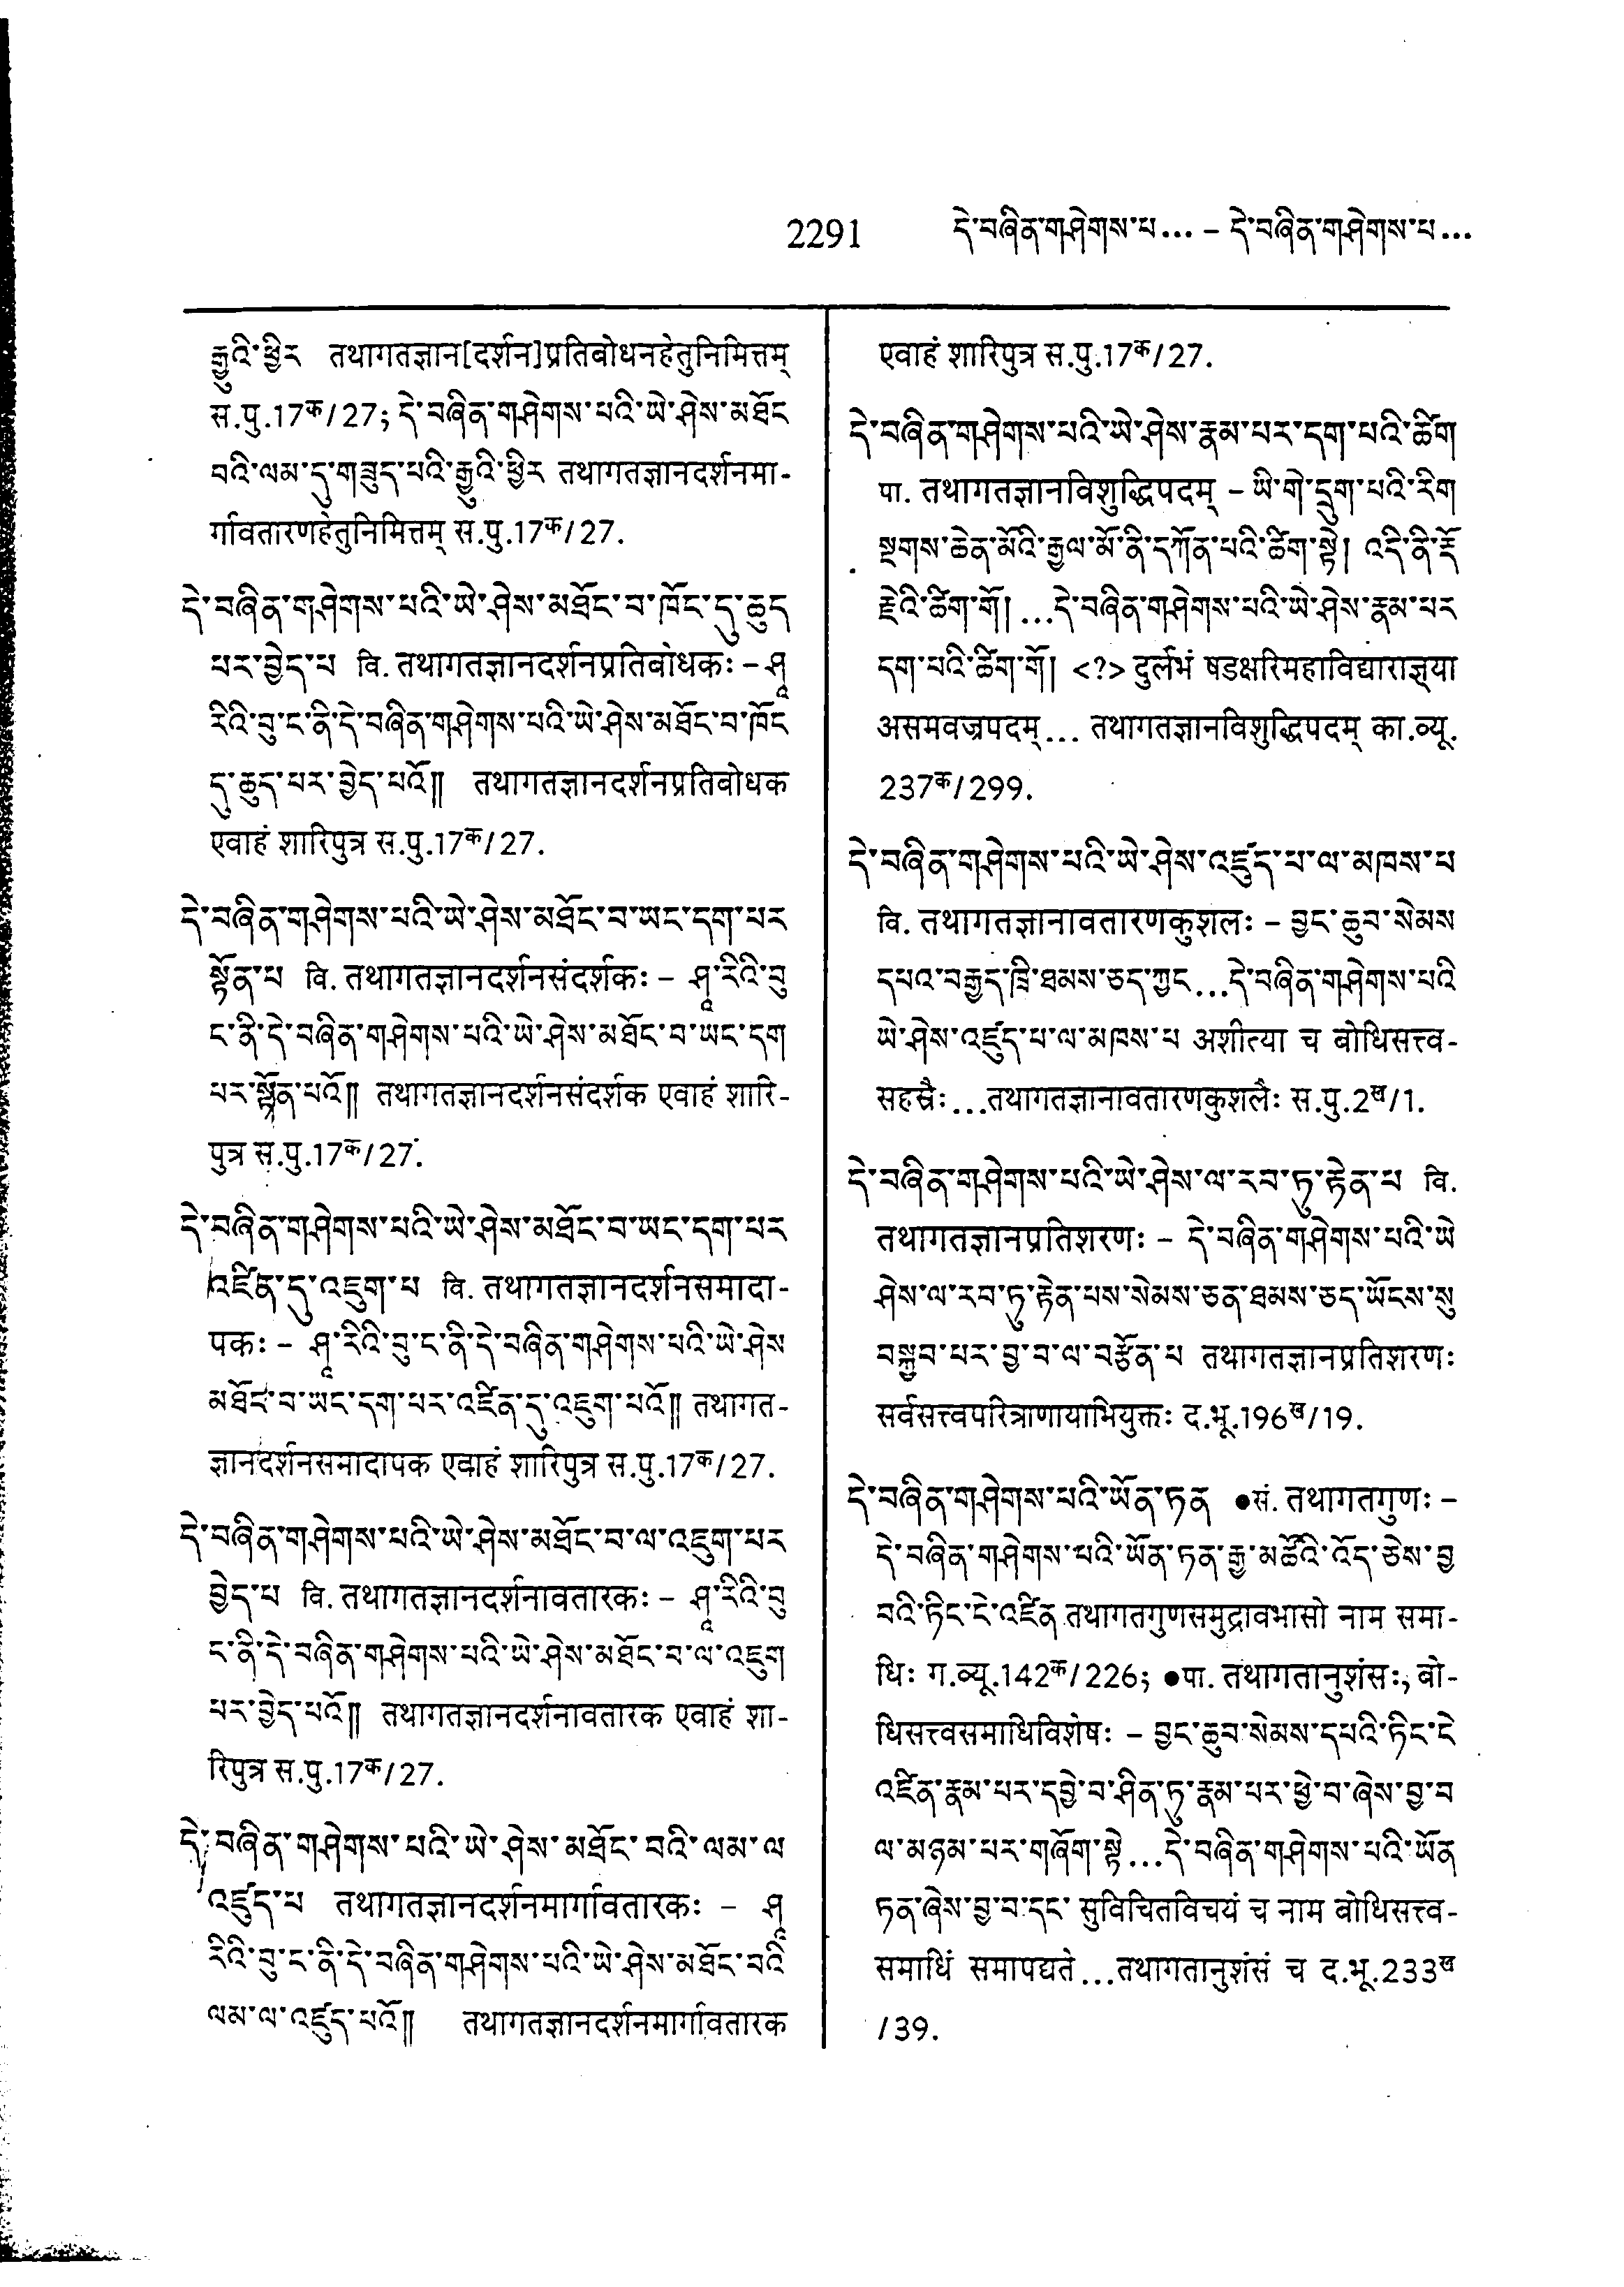 2291 དེ་བཞིན་གཤེགས་པ... – དེ་བཞིན་གཤེགས་པ...
རྒྱུའི་ཕྱིར तथागतज्ञान[दर्शन]प्रतिबोधनहेतुनिमित्तम्
स.पु.17क/27; དེ་བཞིན་གཤེགས་པའི་ཡེ་ཤེས་མཐོང
བའི་ལམ་དུ་གཟུད་པའི་རྒྱུའི་ཕྱིར तथागतज्ञानदर्शनमा-
र्गावतारणहेतुनिमित्तम् स.पु.17क/27.
དེ་བཞིན་གཤེགས་པའི་ཡེ་ཤེས་མཐོང་བ་ཁོང་དུ་ཆུད
པར་བྱེད་པ वि. तथागतज्ञानदर्शनप्रतिबोधकः – ཤཱ
རིའི་བུ་ང་ནི་དེ་བཞིན་གཤེགས་པའི་ཡེ་ཤེས་མཐོང་བ་ཁོང
དུ་ཆུད་པར་བྱེད་པའོ༎ तथागतज्ञानदर्शनप्रतिबोधक
एवाहं शारिपुत्र स.पु.17क/27.
དེ་བཞིན་གཤེགས་པའི་ཡེ་ཤེས་མཐོང་བ་ཡང་དག་པར
སྟོན་པ वि. तथागतज्ञानदर्शनसंदर्शकः – ཤཱ་རིའི་བུ
ང་ནི་དེ་བཞིན་གཤེགས་པའི་ཡེ་ཤེས་མཐོང་བ་ཡང་དག
པར་སྟོན་པའོ༎ तथागतज्ञानदर्शनसंदर्शक एवाहं शारि-
पुत्र स.पु.17क/27.
དེ་བཞིན་གཤེགས་པའི་ཡེ་ཤེས་མཐོང་བ་ཡང་དག་པར
འཛིན་དུ་འཇུག་པ वि. तथागतज्ञानदर्शनसमादा-
पकः – ཤཱ་རིའི་བུ་ང་ནི་དེ་བཞིན་གཤེགས་པའི་ཡེ་ཤེས
མཐོང་བ་ཡང་དག་པར་འཛིན་དུ་འཇུག་པའོ༎ तथागत-
ज्ञानदर्शनसमादापक एवाहं शारिपुत्र स.पु.17क/27.
དེ་བཞིན་གཤེགས་པའི་ཡེ་ཤེས་མཐོང་བ་ལ་འཇུག་པར
བྱེད་པ वि. तथागतज्ञानदर्शनावतारकः – ཤཱ་རིའི་བུ
ང་ནི་དེ་བཞིན་གཤེགས་པའི་ཡེ་ཤེས་མཐོང་བ་ལ་འཇུག
པར་བྱེད་པའོ༎ तथागतज्ञानदर्शनावतारक एवाहं शा-
रिपुत्र स.पु.17क/27.
དེ་བཞིན་གཤེགས་པའི་ཡེ་ཤེས་མཐོང་བའི་ལམ་ལ
འཛུད་པ तथागतज्ञानदर्शनमार्गावतारकः – ཤཱ
རིའི་བུ་ང་ནི་དེ་བཞིན་གཤེགས་པའི་ཡེ་ཤེས་མཐོང་བའི
ལམ་ལ་འཛུད་པའོ༎ तथागतज्ञानदर्शनमार्गावतारक
एवाहं शारिपुत्र स.पु.17क/27.
དེ་བཞིན་གཤེགས་པའི་ཡེ་ཤེས་རྣམ་པར་དག་པའི་ཚིག
पा. तथागतज्ञानविशुद्धिपदम् – ཡི་གེ་དྲུག་པའི་རིག
སྔགས་ཆེན་མོའི་རྒྱལ་མོ་ནི་དཀོན་པའི་ཚིག་སྟེ། འདི་ནི་རྡོ
རྗེའི་ཚིག་གོ།...དེ་བཞིན་གཤེགས་པའི་ཡེ་ཤེས་རྣམ་པར
དག་པའི་ཚིག་གོ། <?> दुर्लभं षडक्षरिमहाविद्याराज्ञ्या
असमवज्रपदम्... तथागतज्ञानविशुद्धिपदम् का.व्यू.
237क/299.
དེ་བཞིན་གཤེགས་པའི་ཡེ་ཤེས་འཛུད་པ་ལ་མཁས་པ
वि. तथागतज्ञानावतारणकुशलः – བྱང་ཆུབ་སེམས
དཔའ་བརྒྱད་ཁྲི་ཐམས་ཅད་ཀྱང...དེ་བཞིན་གཤེགས་པའི
ཡེ་ཤེས་འཛུད་པ་ལ་མཁས་པ अशीत्या च बोधिसत्त्व-
सहस्रैः...तथागतज्ञानावतारणकुशलैः स.पु.2ख/1.
དེ་བཞིན་གཤེགས་པའི་ཡེ་ཤེས་ལ་རབ་ཏུ་རྟེན་པ वि.
तथागतज्ञानप्रतिशरणः – དེ་བཞིན་གཤེགས་པའི་ཡེ
ཤེས་ལ་རབ་ཏུ་རྟེན་པས་སེམས་ཅན་ཐམས་ཅད་ཡོངས་སུ
བསྐྱབ་པར་བྱ་བ་ལ་བརྩོན་པ तथागतज्ञानप्रतिशरणः
सर्वसत्त्वपरित्राणायाभियुक्तः द.भू.196ख/19.
དེ་བཞིན་གཤེགས་པའི་ཡོན་ཏན ●सं. तथागतगुणः –
དེ་བཞིན་གཤེགས་པའི་ཡོན་ཏན་རྒྱ་མཚོའི་འོད་ཅེས་བྱ
བའི་ཏིང་ངེ་འཛིན तथागतगुणसमुद्रावभासो नाम समा-
धिः ग.व्यू.142क/226; ●पा. तथागतानुशंसः, बो-
धिसत्त्वसमाधिविशेषः – བྱང་ཆུབ་སེམས་དཔའི་ཏིང་ངེ
འཛིན་རྣམ་པར་དབྱེ་བ་ཤིན་ཏུ་རྣམ་པར་ཕྱེ་བ་ཞེས་བྱ་བ
ལ་མཉམ་པར་གཞོག་སྟེ...དེ་བཞིན་གཤེགས་པའི་ཡོན
ཏན་ཞེས་བྱ་བ་དང་ सुविचितविचयं च नाम बोधिसत्त्व-
समाधिं समापद्यते...तथागतानुशंसं च द.भू.233ख
/39.